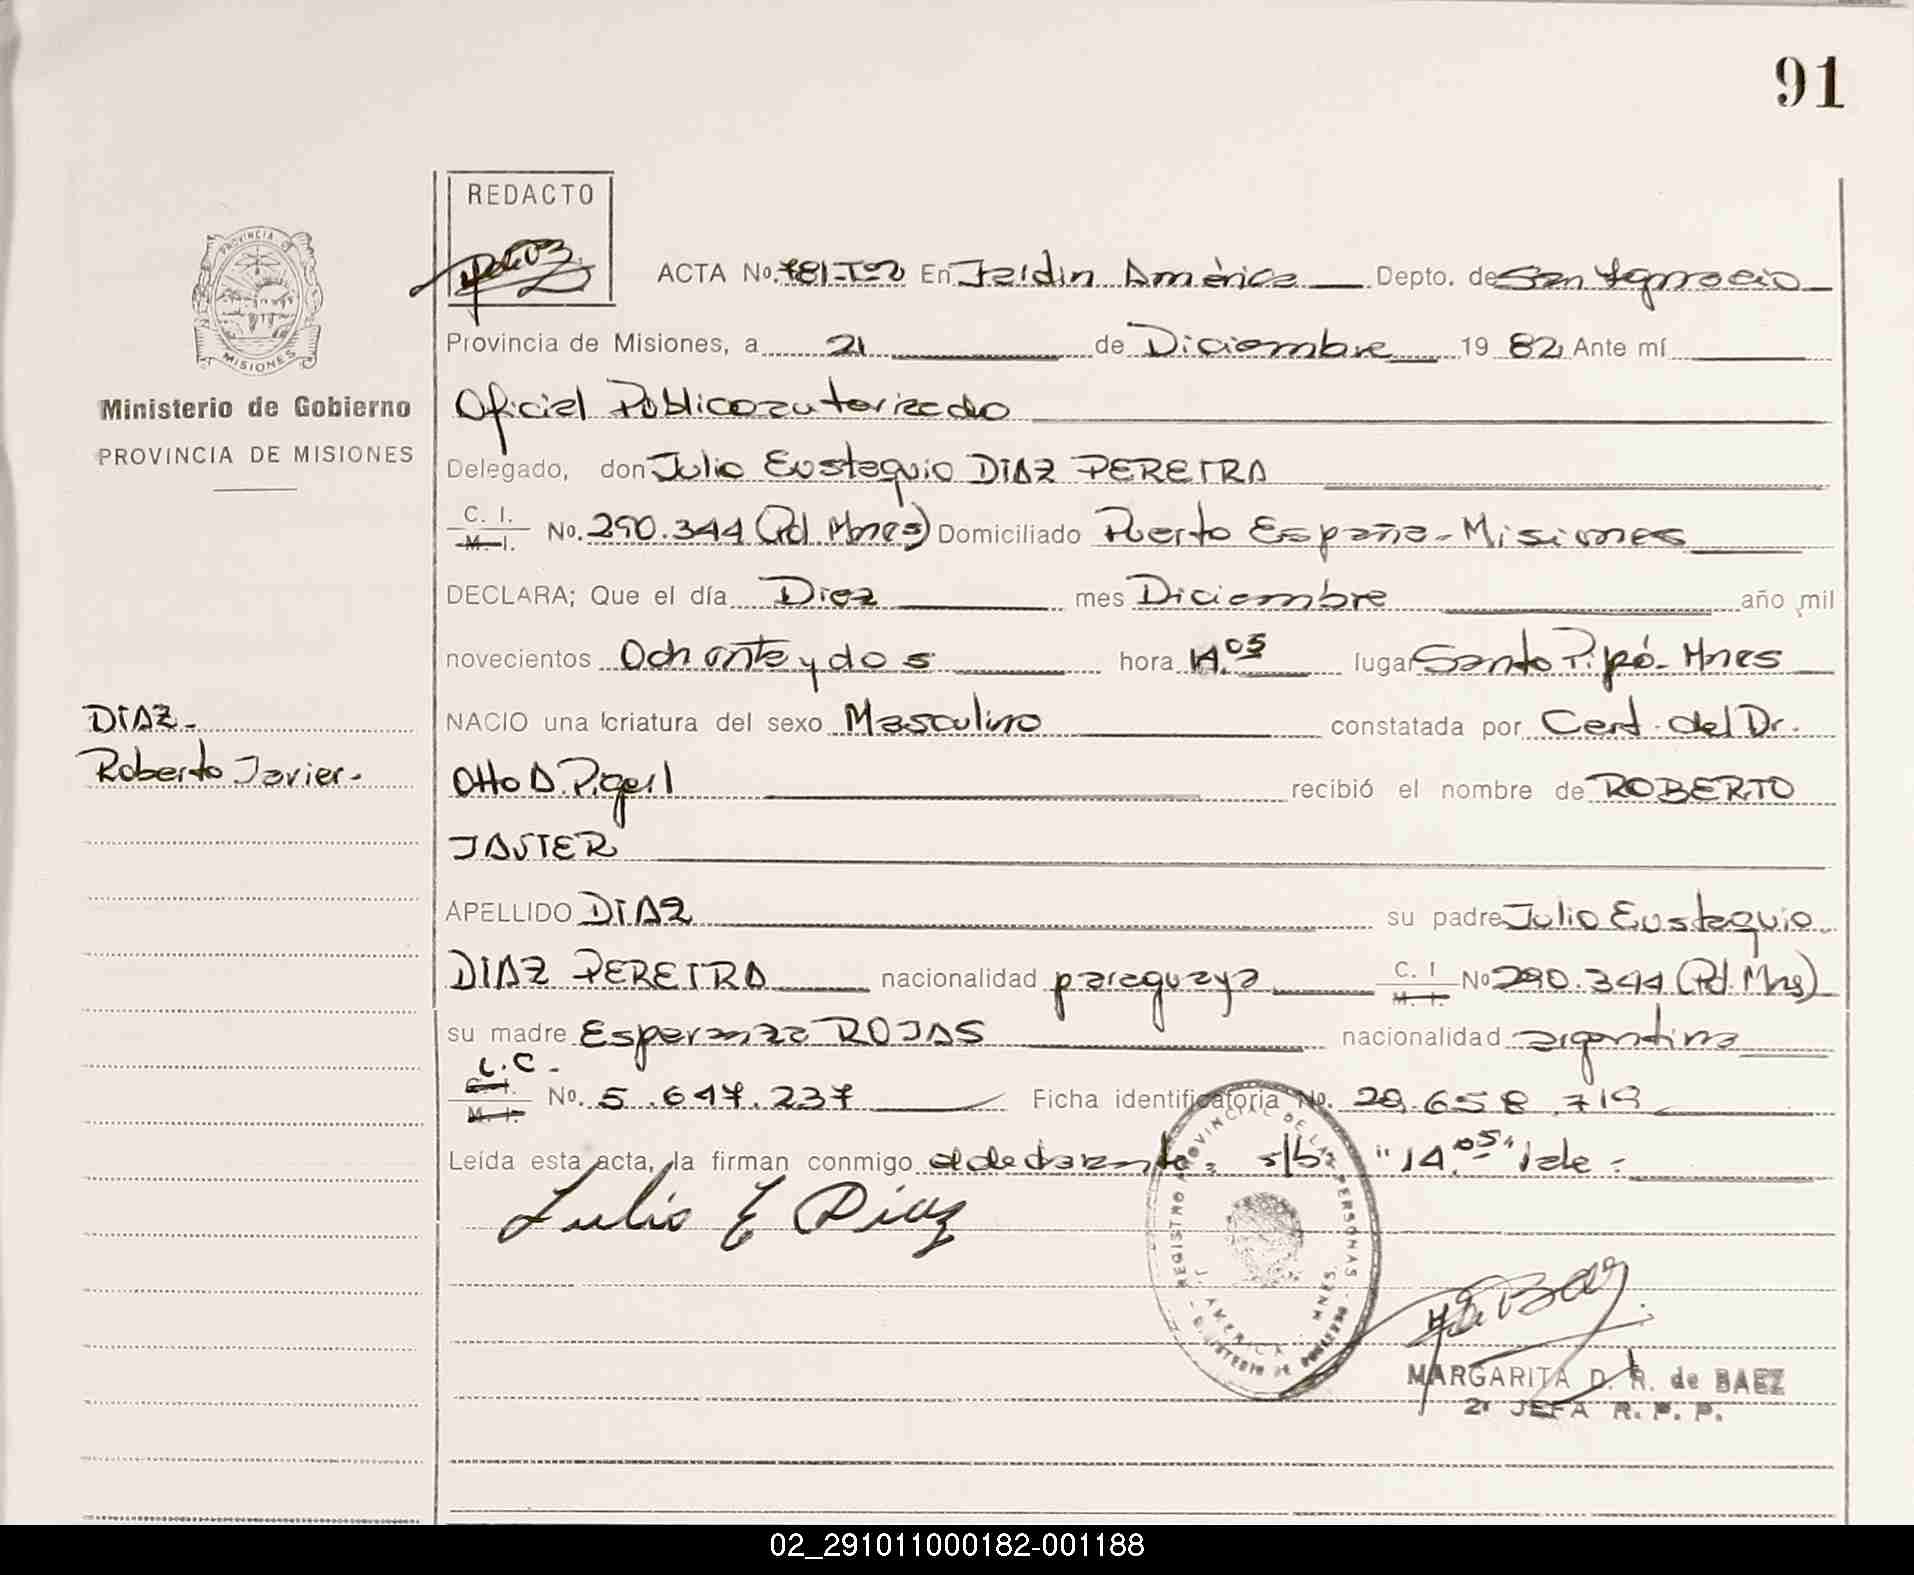 91
REDACTO
ACTA No. 781-T=2 En Jardin América Depto. de San Ignacio
PROVINCIA
MISIONES
Provincia de Misiones, a 21 de Diciembre 19 82 Ante mí
Ministerio de Gobierno
PROVINCIA DE MISIONES
Oficial Publico autorizado
Delegado, don Julio Eustaquio DIAZ PEREIRA
C. I. M. I. No. 290.344 (Pd. Mnes) Domiciliado Puerto España - Misiones
DECLARA; Que el día Diez mes Diciembre año mil
novecientos Ochenta y dos hora 14.05 lugar Santo Pipó - Mnes
DIAZ -
Roberto Javier -
NACIO una criatura del sexo Masculino constatada por Cert. del Dr.
Otto D. Pigerl recibió el nombre de ROBERTO
JAVIER
APELLIDO DIAZ su padre Julio Eustaquio
DIAZ PEREIRA nacionalidad paraguaya C. I M. I. No 290.344 (Pd. Mns)
su madre Esperanza ROJAS nacionalidad argentina
L.C. C. I. M. I. No. 5.647.237 Ficha identificatoria No. 28.658.719
Leída esta acta, la firman conmigo el declarante. s/b "14.05" Vale -
Julio E Diaz
REGISTRO PROVINCIAL DE LAS PERSONAS
J. AMERICA MNES
MINISTERIO DE GOBIERNO
MARGARITA D. R. de BAEZ
2ª JEFA R. P. P.
02_291011000182-001188